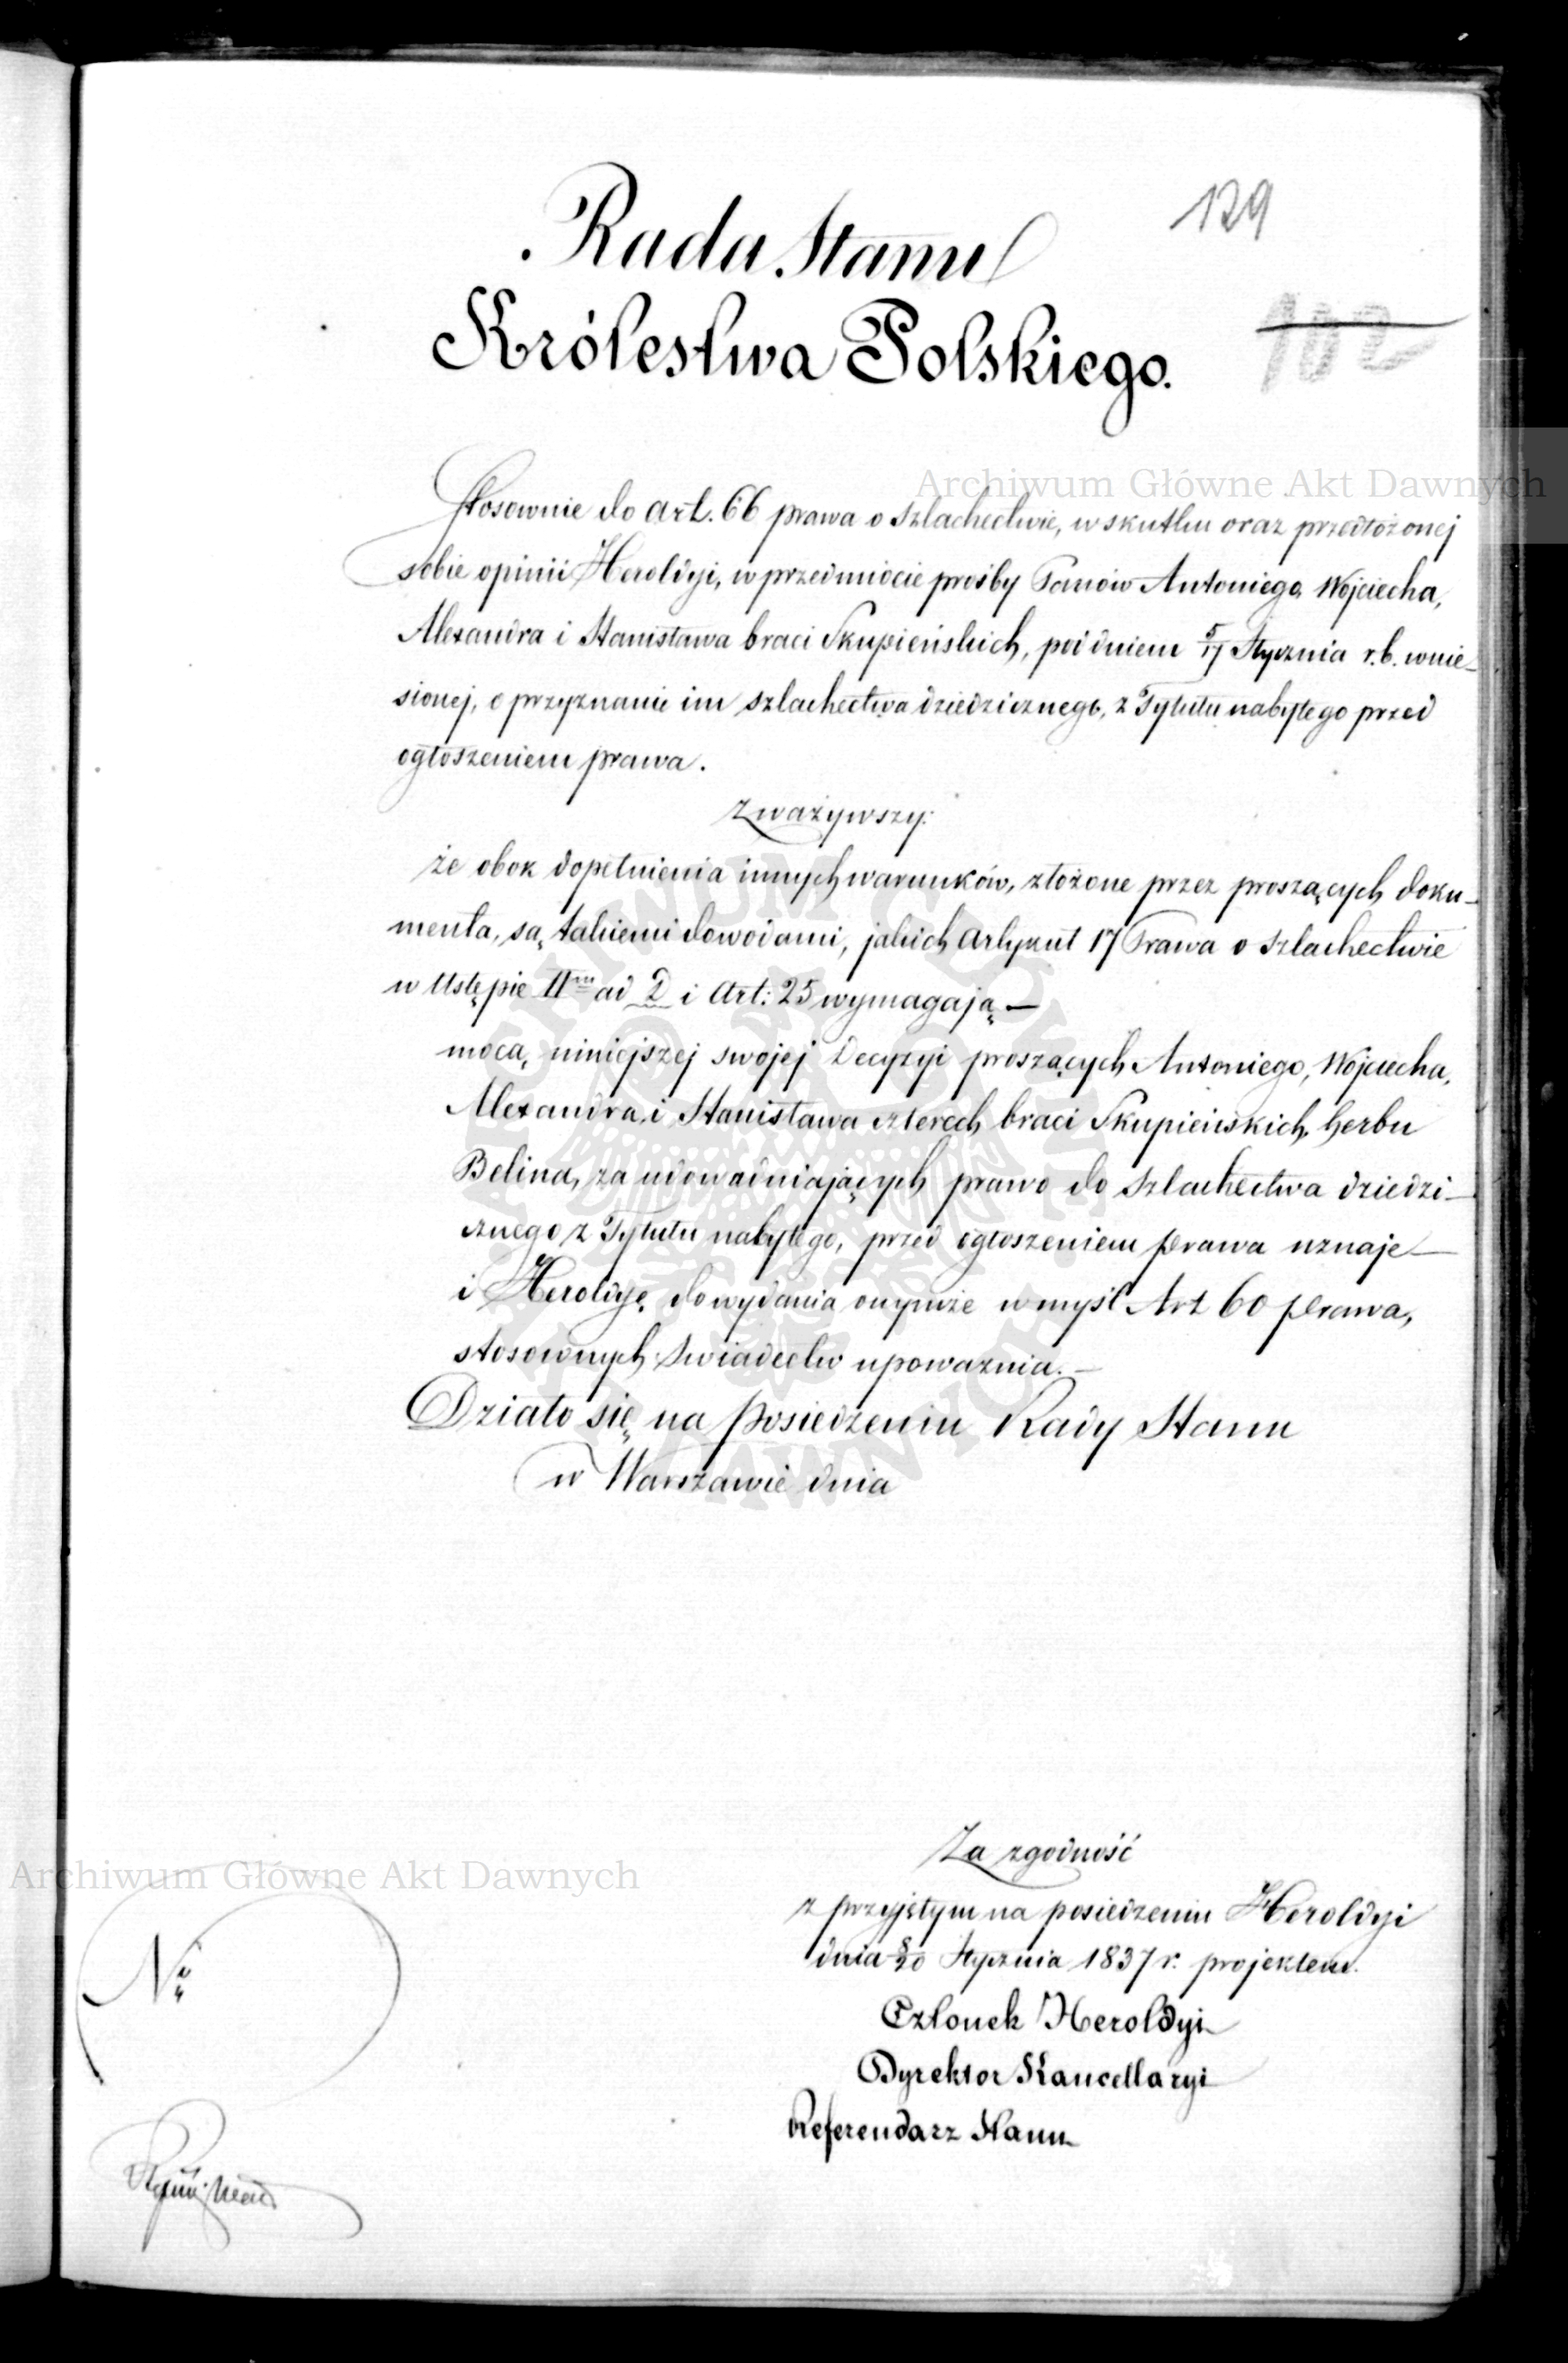 129
Rada Stanu
Królestwa Polskiego.
102
Stosownie do Art. 66 prawa o szlachectwie, w skutku oraz przedłożonej
sobie opinii Heroldyi, w przedmiocie prośby Panów Antoniego, Wojciecha,
Alexandra i Stanisława braci Skupieńskich, pod dniem 5/17 Stycznia r.b. wnie-
sionej, o przyznanie im szlachectwa dziedzicznego, z Tytułu nabytego przed
ogłoszeniem prawa.
Zważywszy:
że obok dopełnienia innych warunków, złożone przez proszących doku-
menta, są takiemi dowodami, jakich Artykuł 17 Prawa o szlachectwie
w Ustępie IIm ad D i Art: 25 wymagają —
mocą niniejszej swojej Decyzyi proszących Antoniego, Wojciecha,
Alexandra, i Stanisława czterech braci Skupieńskich, herbu
Belina, za udowadniających prawo do szlachectwa dziedzi-
cznego z Tytułu nabytego, przed ogłoszeniem prawa uznaje —
i Heroldyę do wydania onymże w myśl Art 60 prawa,
stosownych świadectw upoważnia. —
Działo się na posiedzeniu Rady Stanu
w Warszawie dnia
Za zgodność
z przyjętym na posiedzeniu Heroldyi
dnia 8/20 Stycznia 1837 r. projektem.
Członek Heroldyi
Dyrektor Kancellaryi
Referendarz Stanu
No
Archiwum Główne Akt Dawnych
Archiwum Główne Akt Dawnych